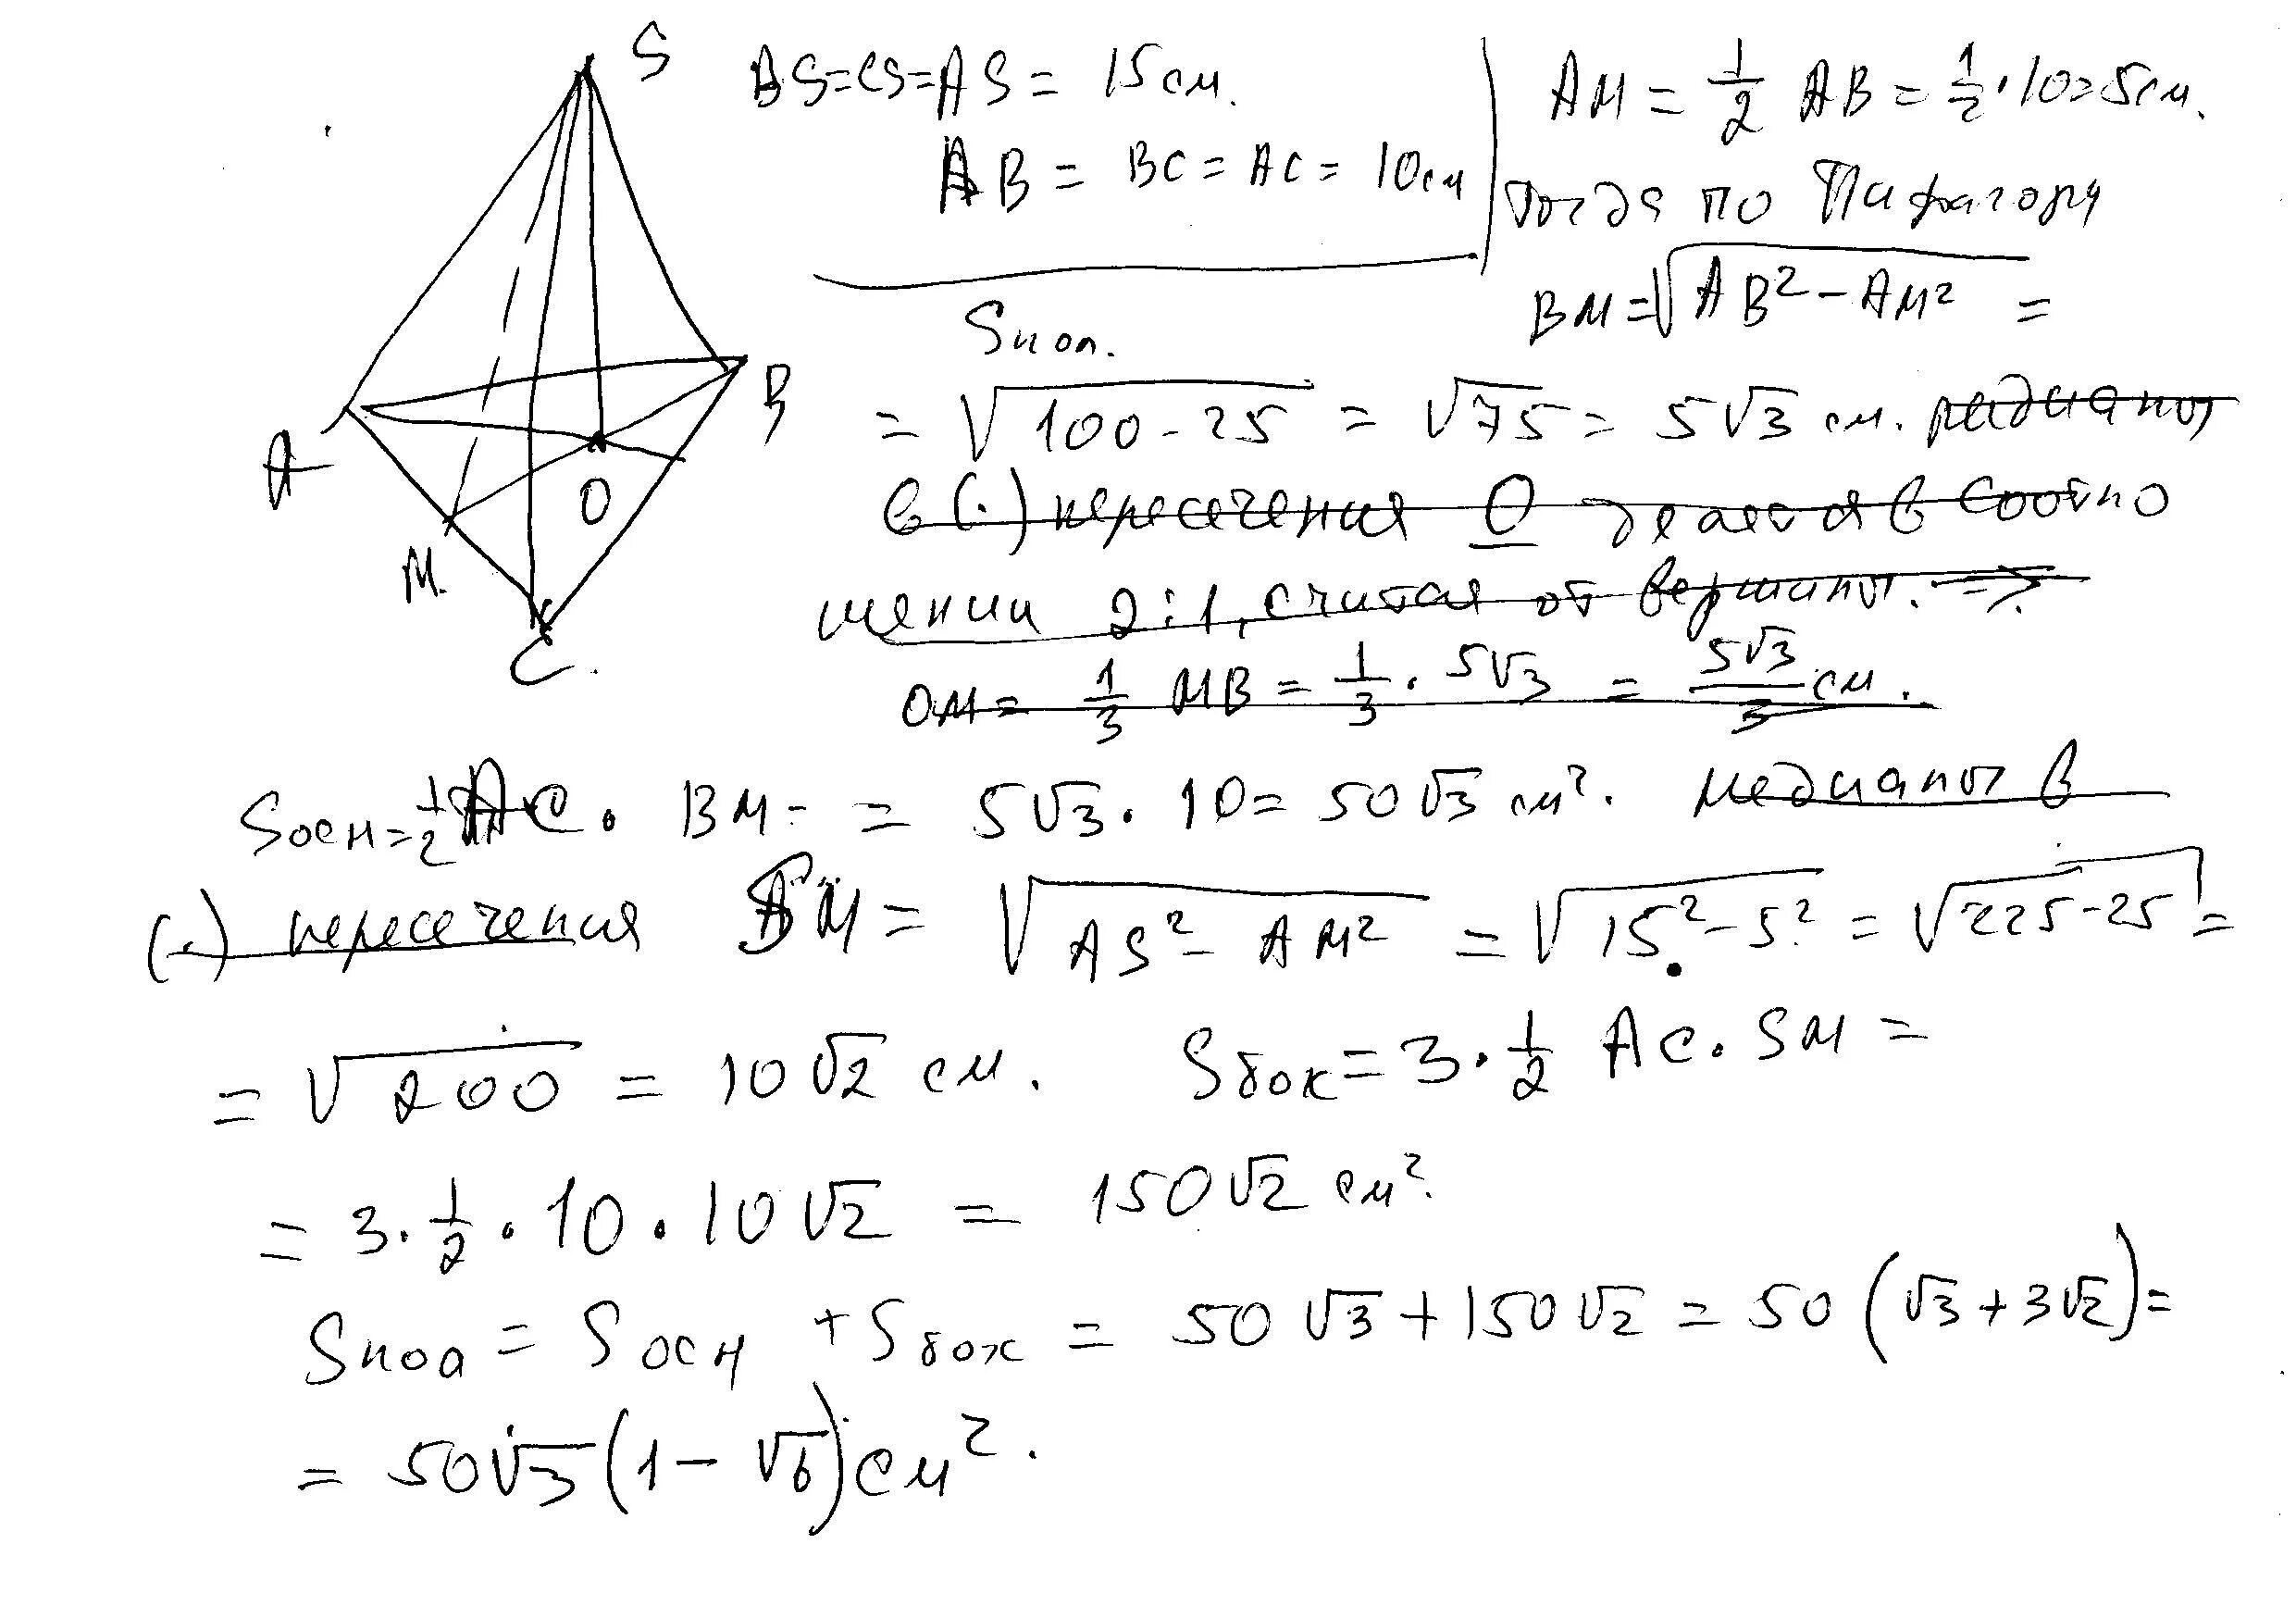 S
A
B
O
M.
C.
BS=CS=AS = 15 см.
AB = BC = AC = 10 см
Sпол.
AM = 1/2 AB = 1/2 · 10 = 5 см.
тогда по Пифагору
BM = √(AB² − AM²) =
= √(100 - 25) = √75 = 5√3 см. медианы
в (·) пересечения O делятся в соотно
шении 2:1, считая от вершины. =>
OM = 1/3 MB = 1/3 · 5√3 = 5√3/3 см.
Sосн = 1/2 AC · BM = = 5√3 · 10 = 50√3 см². медианы в
(·) пересечения SM = √(AS² − AM²) = √(15² − 5²) = √(225-25) =
= √200 = 10√2 см. Sбок = 3 · 1/2 AC · SM =
= 3 · 1/2 · 10 · 10√2 = 150√2 см².
Sпол = Sосн + Sбок = 50√3 + 150√2 = 50 (√3 + 3√2) =
= 50√3 (1 − √6) см².